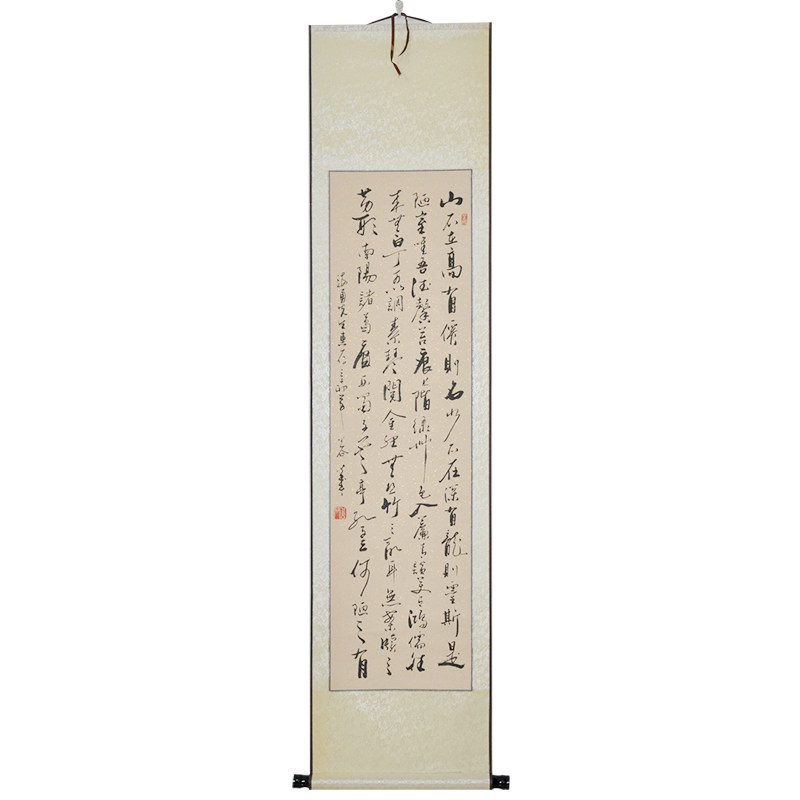 山不在高有僊則名水不在深有龍則靈斯是
陋室唯吾德馨苔痕上階綠艸色入簾青談笑有鴻儒往
來無白丁可以調素琴閱金經無絲竹之亂耳無案牘之
勞形南陽諸葛廬西蜀子雲亭孔子云何陋之有
先生